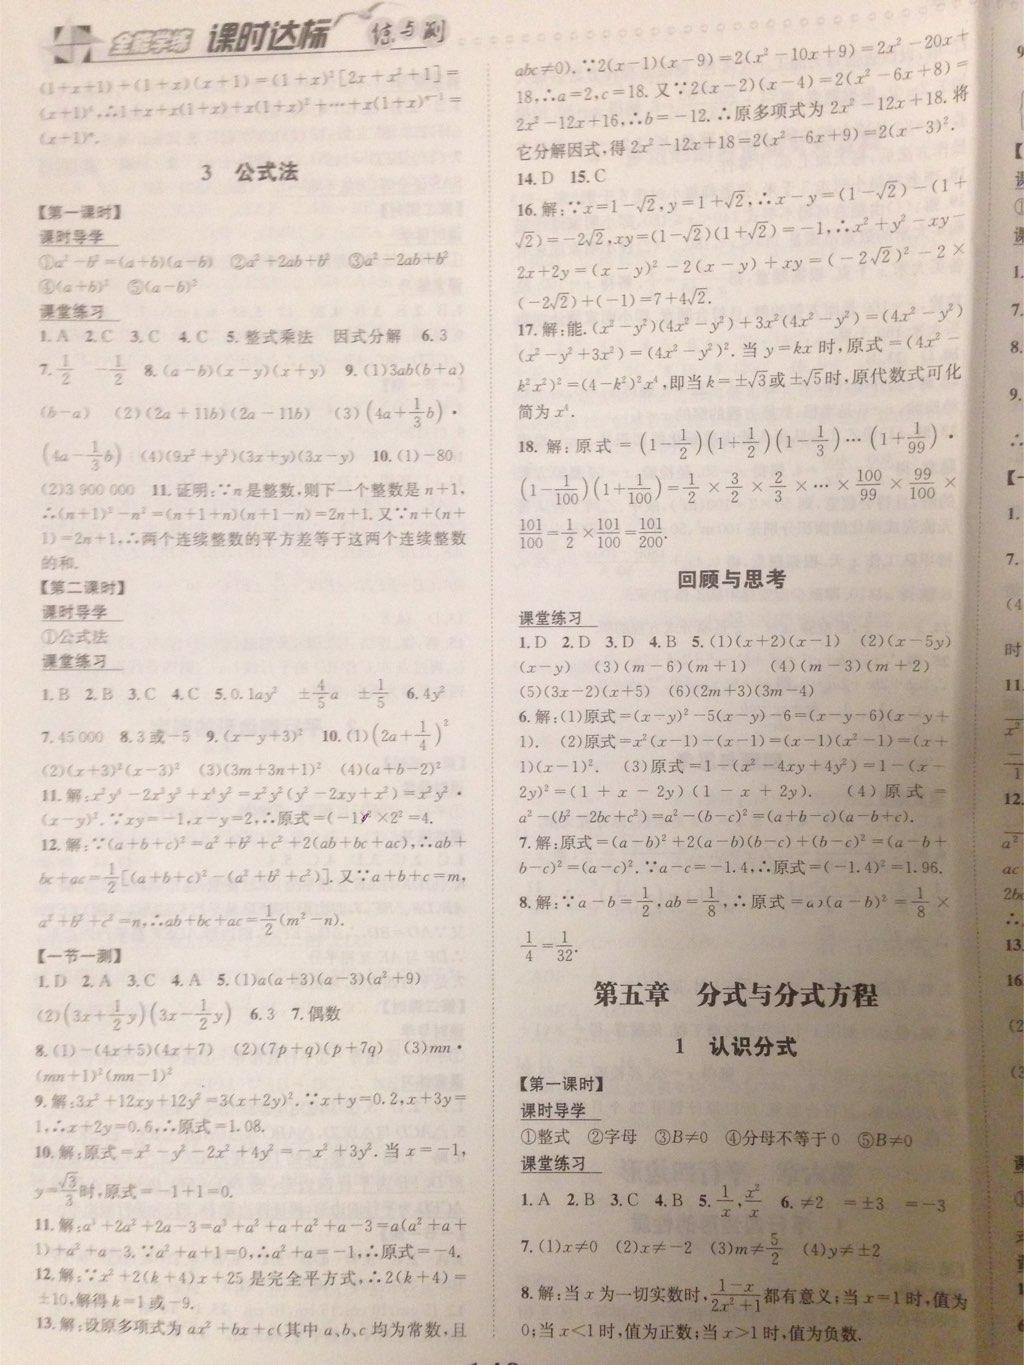 全能学练 课时达标 练与测
(1+x+1)+(1+x)(x+1)=(1+x)²[2x+x²+1]=
(x+1)⁴.∴1+x+x(1+x)+x(1+x)²+⋯+x(1+x)ⁿ⁻¹=
(x+1)ⁿ.
3 公式法
【第一课时】
课时导学
①a²-b²=(a+b)(a-b) ②a²+2ab+b² ③a²-2ab+b²
④(a+b)² ⑤(a-b)²
课堂练习
1.A 2.C 3.C 4.C 5.整式乘法 因式分解 6.3
7.1/2 -1/2 8.(a-b)(x-y)(x+y) 9.(1)3ab(b+a)
(b-a) (2)(2a+11b)(2a-11b) (3)(4a+1/3b)·
(4a-1/3b) (4)(9x²+y²)(3x+y)(3x-y) 10.(1)-80
(2)3 900 000 11.证明:∵n是整数,则下一个整数是n+1,
∴(n+1)²-n²=(n+1+n)(n+1-n)=2n+1.又∵n+(n+
1)=2n+1,∴两个连续整数的平方差等于这两个连续整数
的和.
【第二课时】
课时导学
①公式法
课堂练习
1.B 2.B 3.C 4.C 5.0.1ay² ±4/5a ±1/5 6.4y²
7.45 000 8.3或-5 9.(x-y+3)² 10.(1)(2a+1/4)²
(2)(x+3)²(x-3)² (3)(3m+3n+1)² (4)(a+b-2)²
11.解:x²y⁴-2x³y³+x⁴y²=x²y²(y²-2xy+x²)=x²y²·
(x-y)².∵xy=-1,x-y=2,∴原式=(-1)²×2²=4.
12.解:∵(a+b+c)²=a²+b²+c²+2(ab+bc+ac),∴ab+
bc+ac=1/2[(a+b+c)²-(a²+b²+c²)].又∵a+b+c=m,
a²+b²+c²=n,∴ab+bc+ac=1/2(m²-n).
【一节一测】
1.D 2.A 3.C 4.A 5.(1)a(a+3)(a-3)(a²+9)
(2)(3x+1/2y)(3x-1/2y) 6.3 7.偶数
8.(1)-(4x+5)(4x+7) (2)(7p+q)(p+7q) (3)mn·
(mn+1)²(mn-1)²
9.解:3x²+12xy+12y²=3(x+2y)².∵x+y=0.2,x+3y=
1,∴x+2y=0.6,∴原式=1.08.
10.解:原式=x²-y²-2x²+4y²=-x²+3y².当x=-1,
y=√3/3时,原式=-1+1=0.
11.解:a³+2a²+2a-3=a³+a²+a+a²+a-3=a(a²+a+
1)+a²+a-3.∵a²+a+1=0,∴a²+a=-1,∴原式=-4.
12.解:∵x²+2(k+4)x+25是完全平方式,∴2(k+4)=
±10,解得k=1或-9.
13.解:设原多项式为ax²+bx+c(其中a、b、c均为常数,且
abc≠0).∵2(x-1)(x-9)=2(x²-10x+9)=2x²-20x+
18,∴a=2,c=18.又∵2(x-2)(x-4)=2(x²-6x+8)=
2x²-12x+16,∴b=-12.∴原多项式为2x²-12x+18.将
它分解因式,得2x²-12x+18=2(x²-6x+9)=2(x-3)².
14.D 15.C
16.解:∵x=1-√2,y=1+√2,∴x-y=(1-√2)-(1+
√2)=-2√2,xy=(1-√2)(1+√2)=-1,∴x²+y²-xy-
2x+2y=(x-y)²-2(x-y)+xy=(-2√2)²-2×
(-2√2)+(-1)=7+4√2.
17.解:能.(x²-y²)(4x²-y²)+3x²(4x²-y²)=(4x²-y²)
(x²-y²+3x²)=(4x²-y²)².当y=kx时,原式=(4x²-
k²x²)²=(4-k²)²x⁴,即当k=±√3或±√5时,原代数式可化
简为x⁴.
18.解:原式=(1-1/2)(1+1/2)(1-1/3)⋯(1+1/99)·
(1-1/100)(1+1/100)=1/2×3/2×2/3×⋯×100/99×99/100×
101/100=1/2×101/100=101/200.
回顾与思考
课堂练习
1.D 2.D 3.D 4.B 5.(1)(x+2)(x-1) (2)(x-5y)
(x-y) (3)(m-6)(m+1) (4)(m-3)(m+2)
(5)(3x-2)(x+5) (6)(2m+3)(3m-4)
6.解:(1)原式=(x-y)²-5(x-y)-6=(x-y-6)(x-y+
1). (2)原式=x²(x-1)-(x-1)=(x-1)(x²-1)=(x+
1)(x-1)². (3)原式=1-(x²-4xy+4y²)=1-(x-
2y)²=(1+x-2y)(1-x+2y). (4)原式=
a²-(b²-2bc+c²)=a²-(b-c)²=(a+b-c)(a-b+c).
7.解:原式=(a-b)²+2(a-b)(b-c)+(b-c)²=(a-b+
b-c)²=(a-c)².∵a-c=-1.4,∴原式=(-1.4)²=1.96.
8.解:∵a-b=1/2,ab=1/8,∴原式=ab(a-b)²=1/8×
1/4=1/32.
第五章 分式与分式方程
1 认识分式
【第一课时】
课时导学
①整式 ②字母 ③B≠0 ④分母不等于0 ⑤B≠0
课堂练习
1.A 2.B 3.C 4.B 5.1/x,x²/x 6.≠2 =±3 =-3
7.(1)x≠0 (2)x≠-2 (3)m≠5/2 (4)y≠±2
8.解:当x为一切实数时,(1-x)/(2x²+1)都有意义;当x=1时,值为
0;当x<1时,值为正数;当x>1时,值为负数.